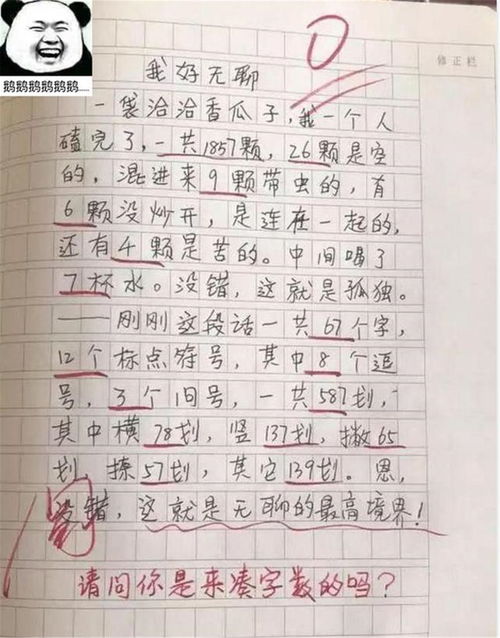 鹅鹅鹅鹅鹅鹅......
修正栏
0
我好无聊
一袋洽洽香瓜子,我一个人
磕完了,一共1857颗,26颗是空
的,混进来9颗带虫的,有
6颗没炒开,是连在一起的,
还有4颗是苦的。中间喝了
7杯水。没错,这就是孤独。
——刚刚这段话一共67个字,
12个标点符号,其中8个逗
号,3个问号,一共587划,
其中横78划,竖137划,撇65
划,捺57划,其它139划。恩,
没错,这就是无聊的最高境界!
请问你是来凑字数的吗?